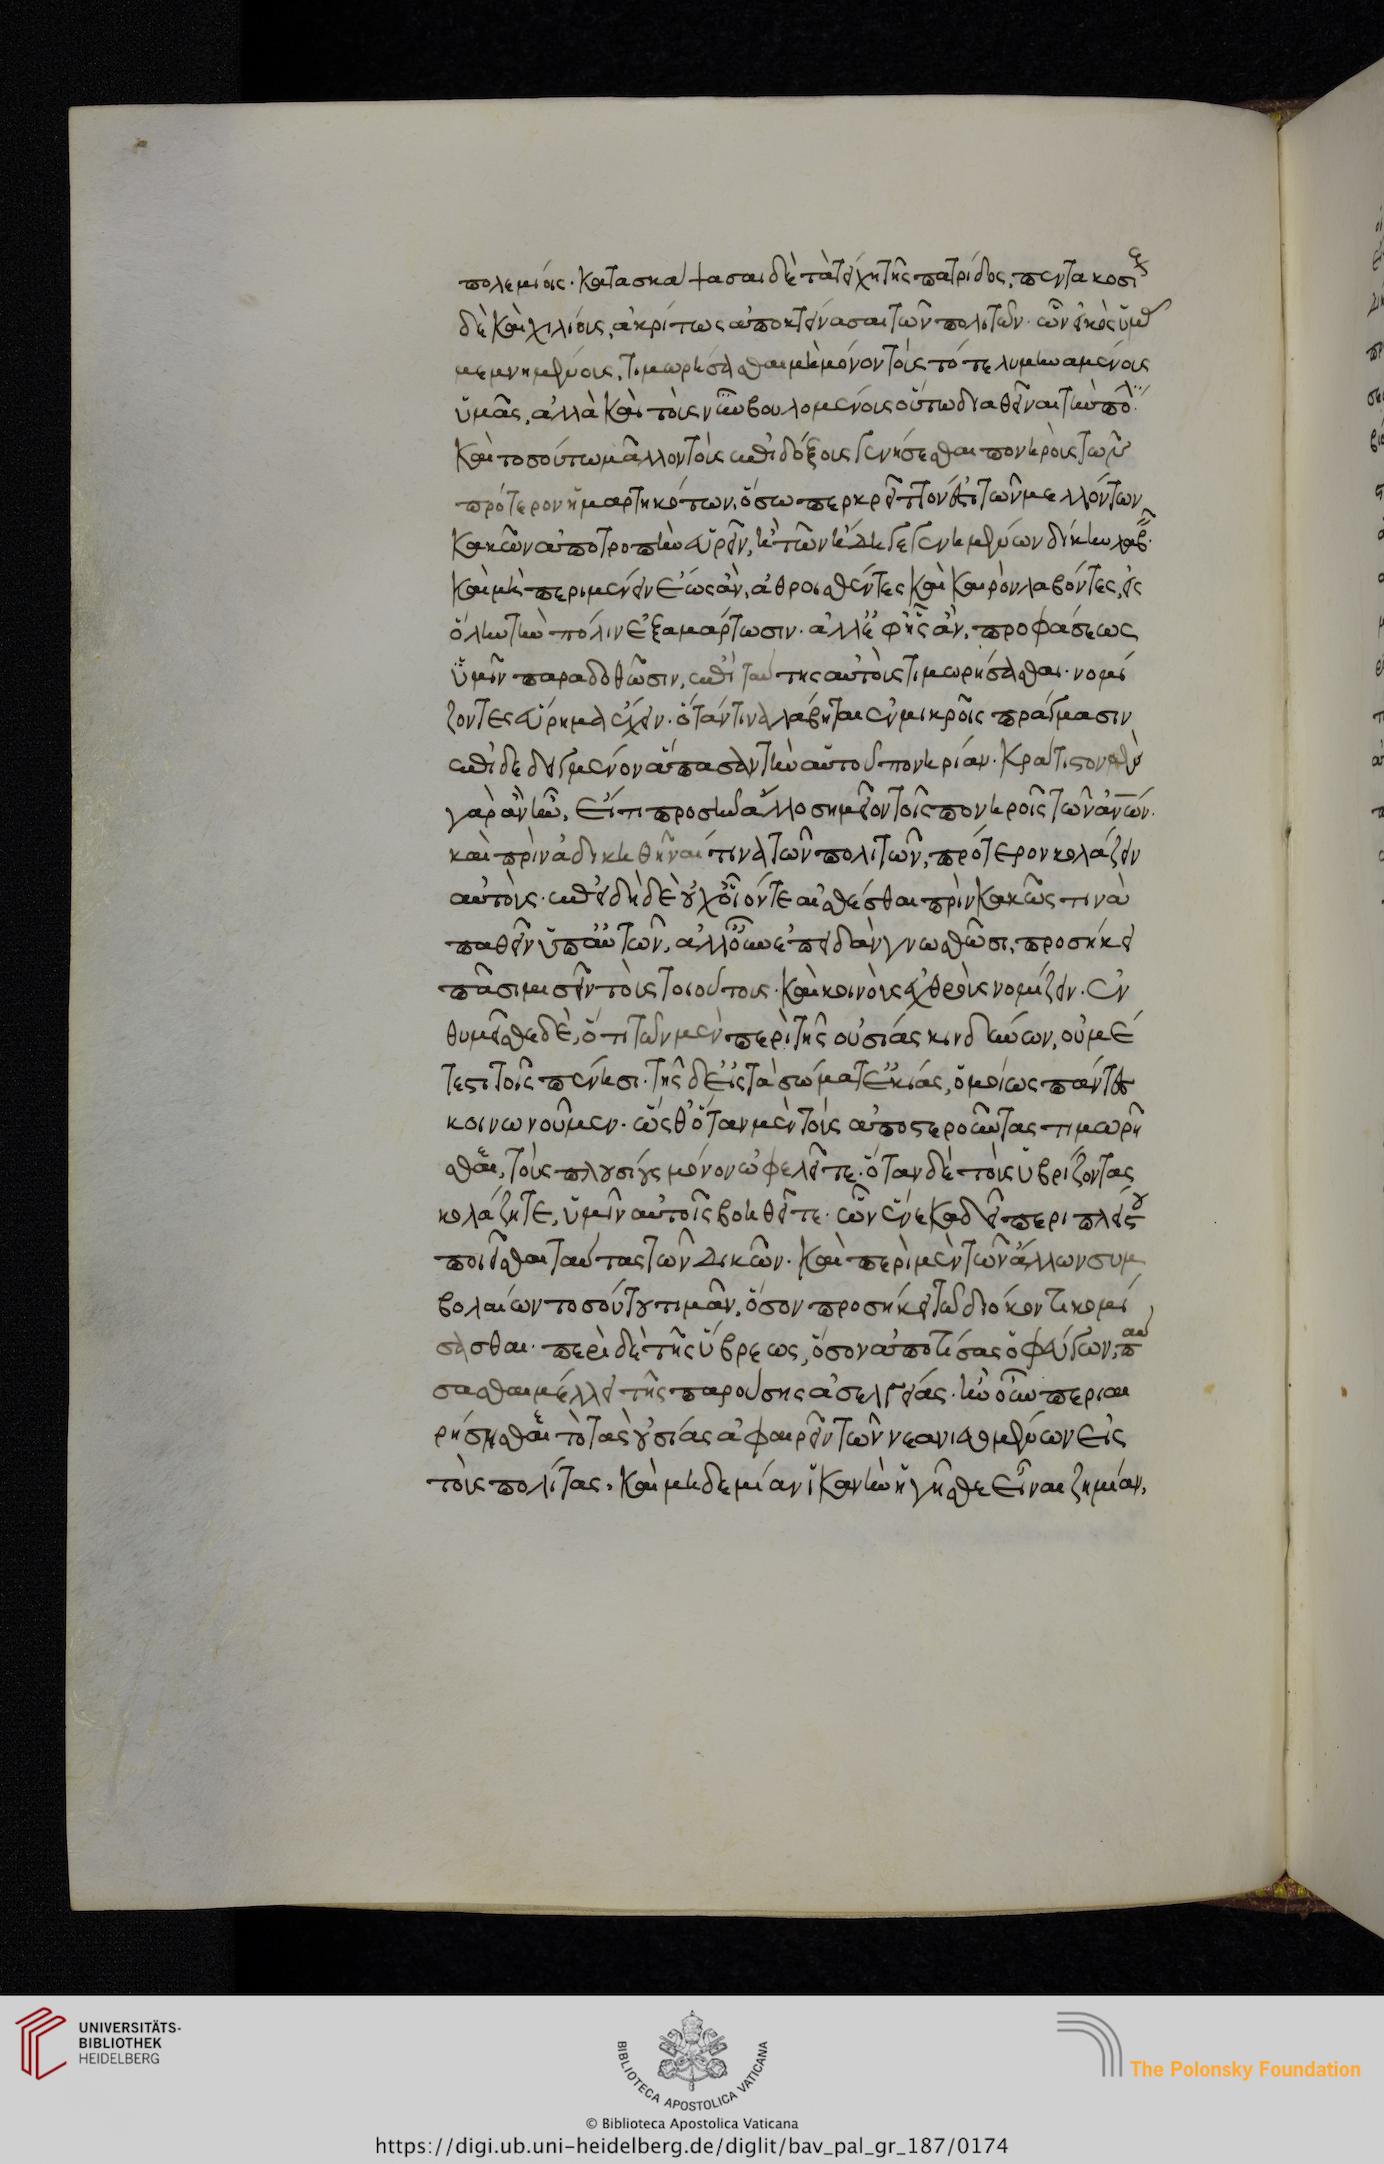 πολεμίοις· κατασκάψασαι δὲ τὰ τείχη τῆς πατρίδος, πεντακοσίους
δὲ καὶ χιλίους, ἀκρίτως ἀποκτείνασαι τῶν πολιτῶν· ὧν εἰκὸς ὑμᾶς
μεμνημένους, τιμωρεῖσθαι μὴ μόνον τοὺς τότε λυμηναμένους
ὑμᾶς, ἀλλὰ καὶ τοὺς νῦν βουλομένους οὕτω διαθεῖναι τὴν πόλιν·
καὶ τοσούτω μᾶλλον τοὺς ἐπιδόξους γενήσεσθαι πονηροὺς τῶν
πρότερον ἡμαρτηκότων, ὅσω περ κρεῖττόν ἐστι τῶν μελλόντων
κακῶν ἀποτροπὴν εὑρεῖν, ἢ τῶν ἤδη γεγενημένων δίκην λαβεῖν·
καὶ μὴ περιμένειν ἕως ἂν, ἀθροισθέντες καὶ καιρὸν λαβόντες, εἰς
ὅλην τὴν πόλιν ἐξαμάρτωσιν· ἀλλ' ἐφ' ἧς ἂν, προφάσεως
ὑμῖν παραδοθῶσιν, ἐπὶ ταύτης αὐτοὺς τιμωρεῖσθαι· νομί
ζοντες εὕρημα ἔχειν· ὅταν τινὰ λάβητε ἐν μικροῖς πράγμασιν
ἐπιδεδειγμένον ἅπασαν τὴν αὑτοῦ πονηρίαν· κράτιστον μὲν
γὰρ ἂν ἦν, εἴ τι προσῆν ἄλλο σημεῖον τοῖς πονηροῖς τῶν ἀνων·
καὶ πρὶν ἀδικηθῆναί τινα τῶν πολιτῶν, πρότερον κολάζειν
αὐτούς· ἐπειδὴ δὲ οὐχ οἷόντε αἰσθέσθαι πρὶν κακῶς τινὰς
παθεῖν ὑπ' αὐτῶν, ἀλλ' οὖν ἐπειδὰν γνωσθῶσι, προσήκει
πᾶσι μισεῖν τοὺς τοιούτους· καὶ κοινοὺς ἐχθροὺς νομίζειν· ἐν
θυμεῖσθε δὲ, ὅτι τῶν μὲν περὶ τῆς οὐσίας κινδύνων, οὐ μέ
τεστι τοῖς πένησι· τῆς δ' εἰς τὰ σώματ' αἰκίας, ὁμοίως πάντες
κοινωνοῦμεν· ὥσθ' ὅταν μὲν τοὺς ἀποστεροῦντας τιμωρῆ
σθαι, τοὺς πλουσίους μόνον ὠφελεῖτε· ὅταν δὲ τοὺς ὑβρίζοντας
κολάζητε, ὑμῖν αὐτοῖς βοηθεῖτε· ὧν ἕνεκα δεῖ περὶ πλείστου
ποιεῖσθαι ταύτας τῶν δικῶν· καὶ περὶ μὲν τῶν ἄλλων συμ
βολαίων τοσούτου τιμᾶν, ὅσον προσήκει τῶ διώκοντι κομί
σασθαι· περὶ δὲ τῆς ὕβρεως, ὅσον ἀποτίσας ὁ φεύγων, παύ
σασθαι μέλλει τῆς παρούσης ἀσελγείας· ἢν οὖν περιαι
ρήσησθε τὸ τὰς οὐσίας ἀφαιρεῖν τῶν νεανιευομένων εἰς
τοὺς πολίτας· καὶ μηδεμίαν ἱκανὴν ἡγῆσθε εἶναι ζημίαν,
UNIVERSITÄTS-
BIBLIOTHEK
HEIDELBERG
BIBLIOTECA APOSTOLICA VATICANA
The Polonsky Foundation
© Biblioteca Apostolica Vaticana
https://digi.ub.uni-heidelberg.de/diglit/bav_pal_gr_187/0174